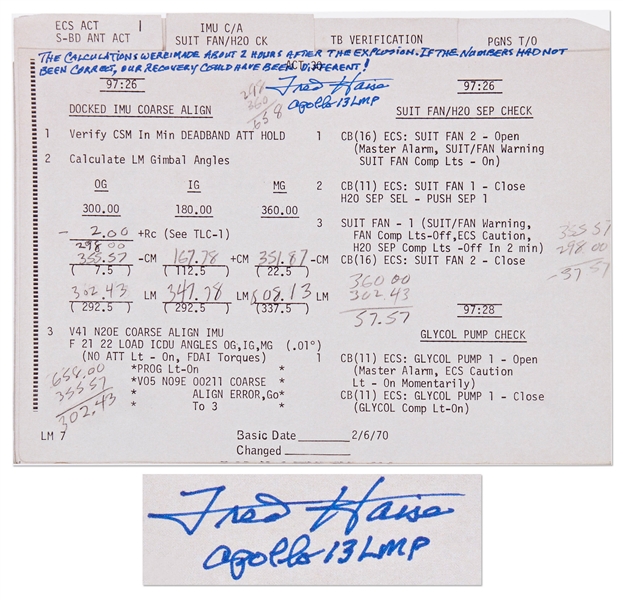 ECS ACT
S-BD ANT ACT
IMU C/A
SUIT FAN/H2O CK
TB VERIFICATION
PGNS T/O
THE CALCULATIONS WERE MADE ABOUT 2 HOURS AFTER THE EXPLOSION. IF THE NUMBERS HAD NOT
BEEN CORRECT, OUR RECOVERY COULD HAVE BEEN DIFFERENT!
Fred Haise
Apollo 13 LMP
97:26
298
360
658
DOCKED IMU COARSE ALIGN
1 Verify CSM In Min DEADBAND ATT HOLD
2 Calculate LM Gimbal Angles
OG IG MG
300.00 180.00 360.00
- 2.00 +Rc (See TLC-1)
298.00
355.57 -CM 167.78 +CM 351.87 -CM
( 7.5 ) (112.5 ) ( 22.5 )
302.43 LM 347.78 LM 608.13 LM
( 292.5 ) ( 292.5 ) (337.5 )
3 V41 N20E COARSE ALIGN IMU
F 21 22 LOAD ICDU ANGLES OG,IG,MG (.01°)
(NO ATT Lt - On, FDAI Torques)
*PROG Lt-On *
*V05 N09E 00211 COARSE *
* ALIGN ERROR,Go*
* To 3 *
658.00
355.57
302.43
97:26
SUIT FAN/H2O SEP CHECK
1 CB(16) ECS: SUIT FAN 2 - Open
(Master Alarm, SUIT/FAN Warning
SUIT FAN Comp Lts - On)
2 CB(11) ECS: SUIT FAN 1 - Close
H2O SEP SEL - PUSH SEP 1
3 SUIT FAN - 1 (SUIT/FAN Warning,
FAN Comp Lts-Off,ECS Caution,
H2O SEP Comp Lts -Off In 2 min)
CB(16) ECS: SUIT FAN 2 - Close
355 57
298 00
57 57
360 00
302.43
57.57
97:28
GLYCOL PUMP CHECK
1 CB(11) ECS: GLYCOL PUMP 1 - Open
(Master Alarm, ECS Caution
Lt - On Momentarily)
CB(11) ECS: GLYCOL PUMP 1 - Close
(GLYCOL Comp Lt-On)
LM 7
Basic Date 2/6/70
Changed
Fred Haise
Apollo 13 LMP